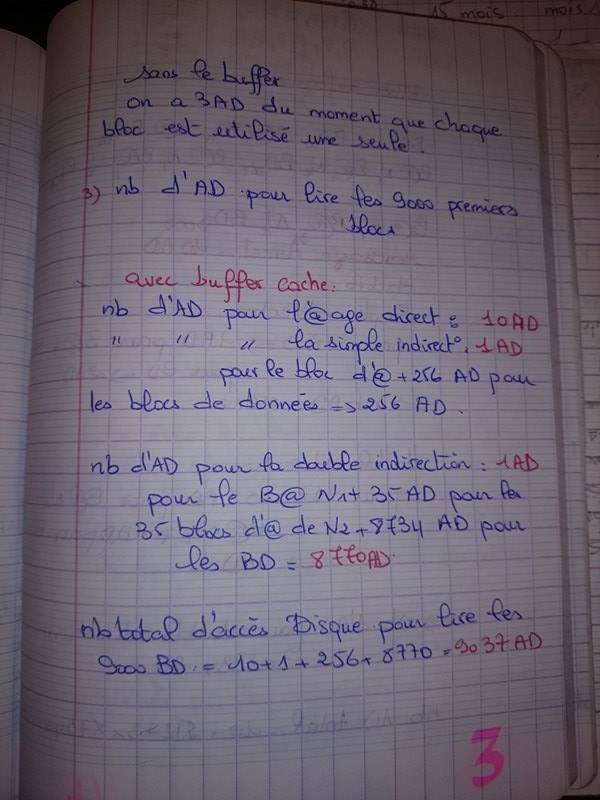 15 mois mois
sans le buffer
on a 3AD du moment que chaque
bloc est utilisé une seule.
3) nb d'AD pour lire les 9000 premiers
blocs
avec buffer cache.
nb d'AD pour l'@age direct : 10AD
" " " la simple indirect°. 1AD
pour le bloc d'@ + 256 AD pour
les blocs de données => 256 AD.
nb d'AD pour la double indirection : 1AD
pour le B@ N1 + 35 AD pour les
35 blocs d'@ de N2 + 8734 AD pour
les BD = 8770AD.
nb total d'accès Disque pour lire les
9000 BD = 10+1+256+8770 = 9037 AD
3